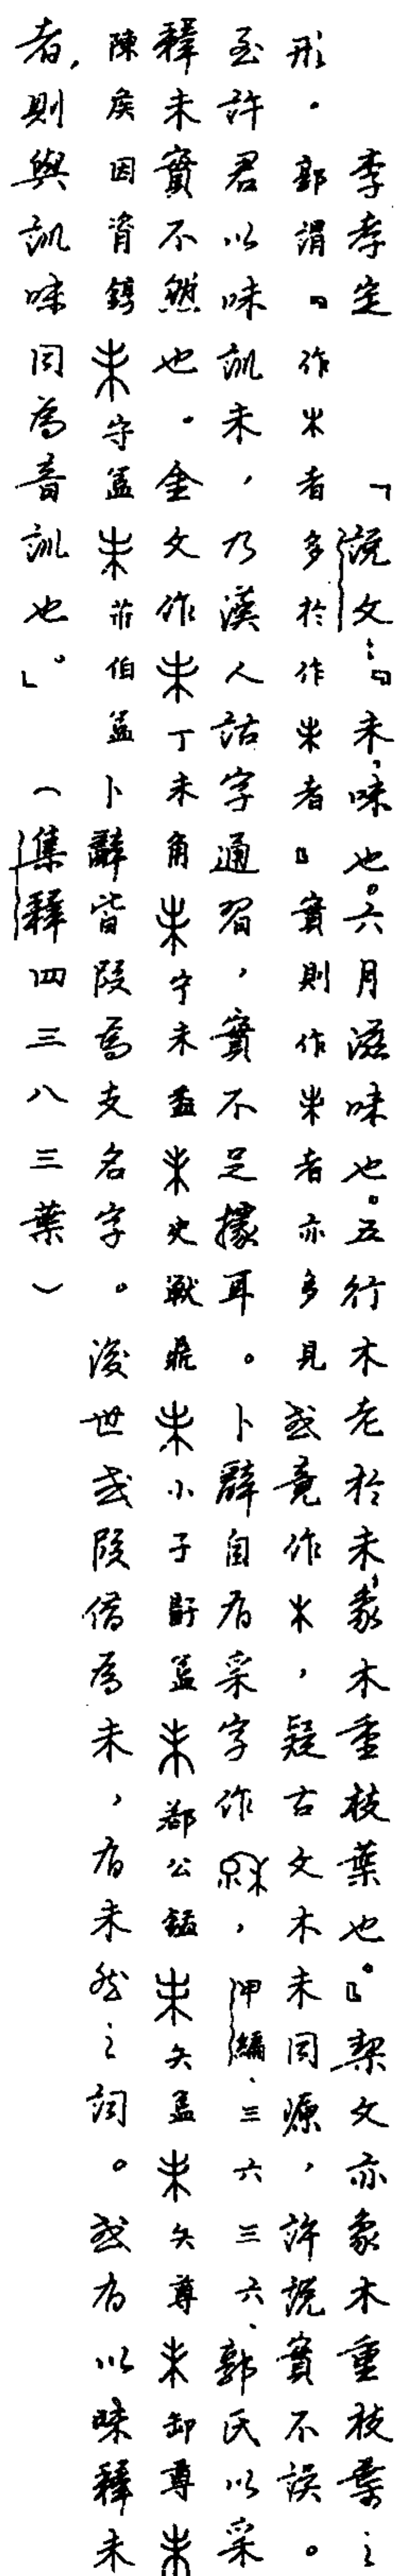 李孝定 「說文：『未，味也。六月滋味也。五行木老於未，象木重枝葉也。』栔文亦象木重枝葉之
形。郭謂『作者多於作者』實則作者亦多見或竟作，疑古文木未同源，許說實不誤。
至許君以味訓未，乃漢人詁字通習，實不足據耳。卜辭自有采字作，甲編、三六三六、郭氏以采
釋未實不然也。金文作丁未角宁未盉史獸鼎小子𠭯簋都公簋矢簋矢尊卸尊
陳侯因資錞守簋伯簋卜辭皆叚為支名字。後世或叚借為未，有未然之詞。或有以味釋未
者，則與訓味同為音訓也。」（集釋四三八三葉）